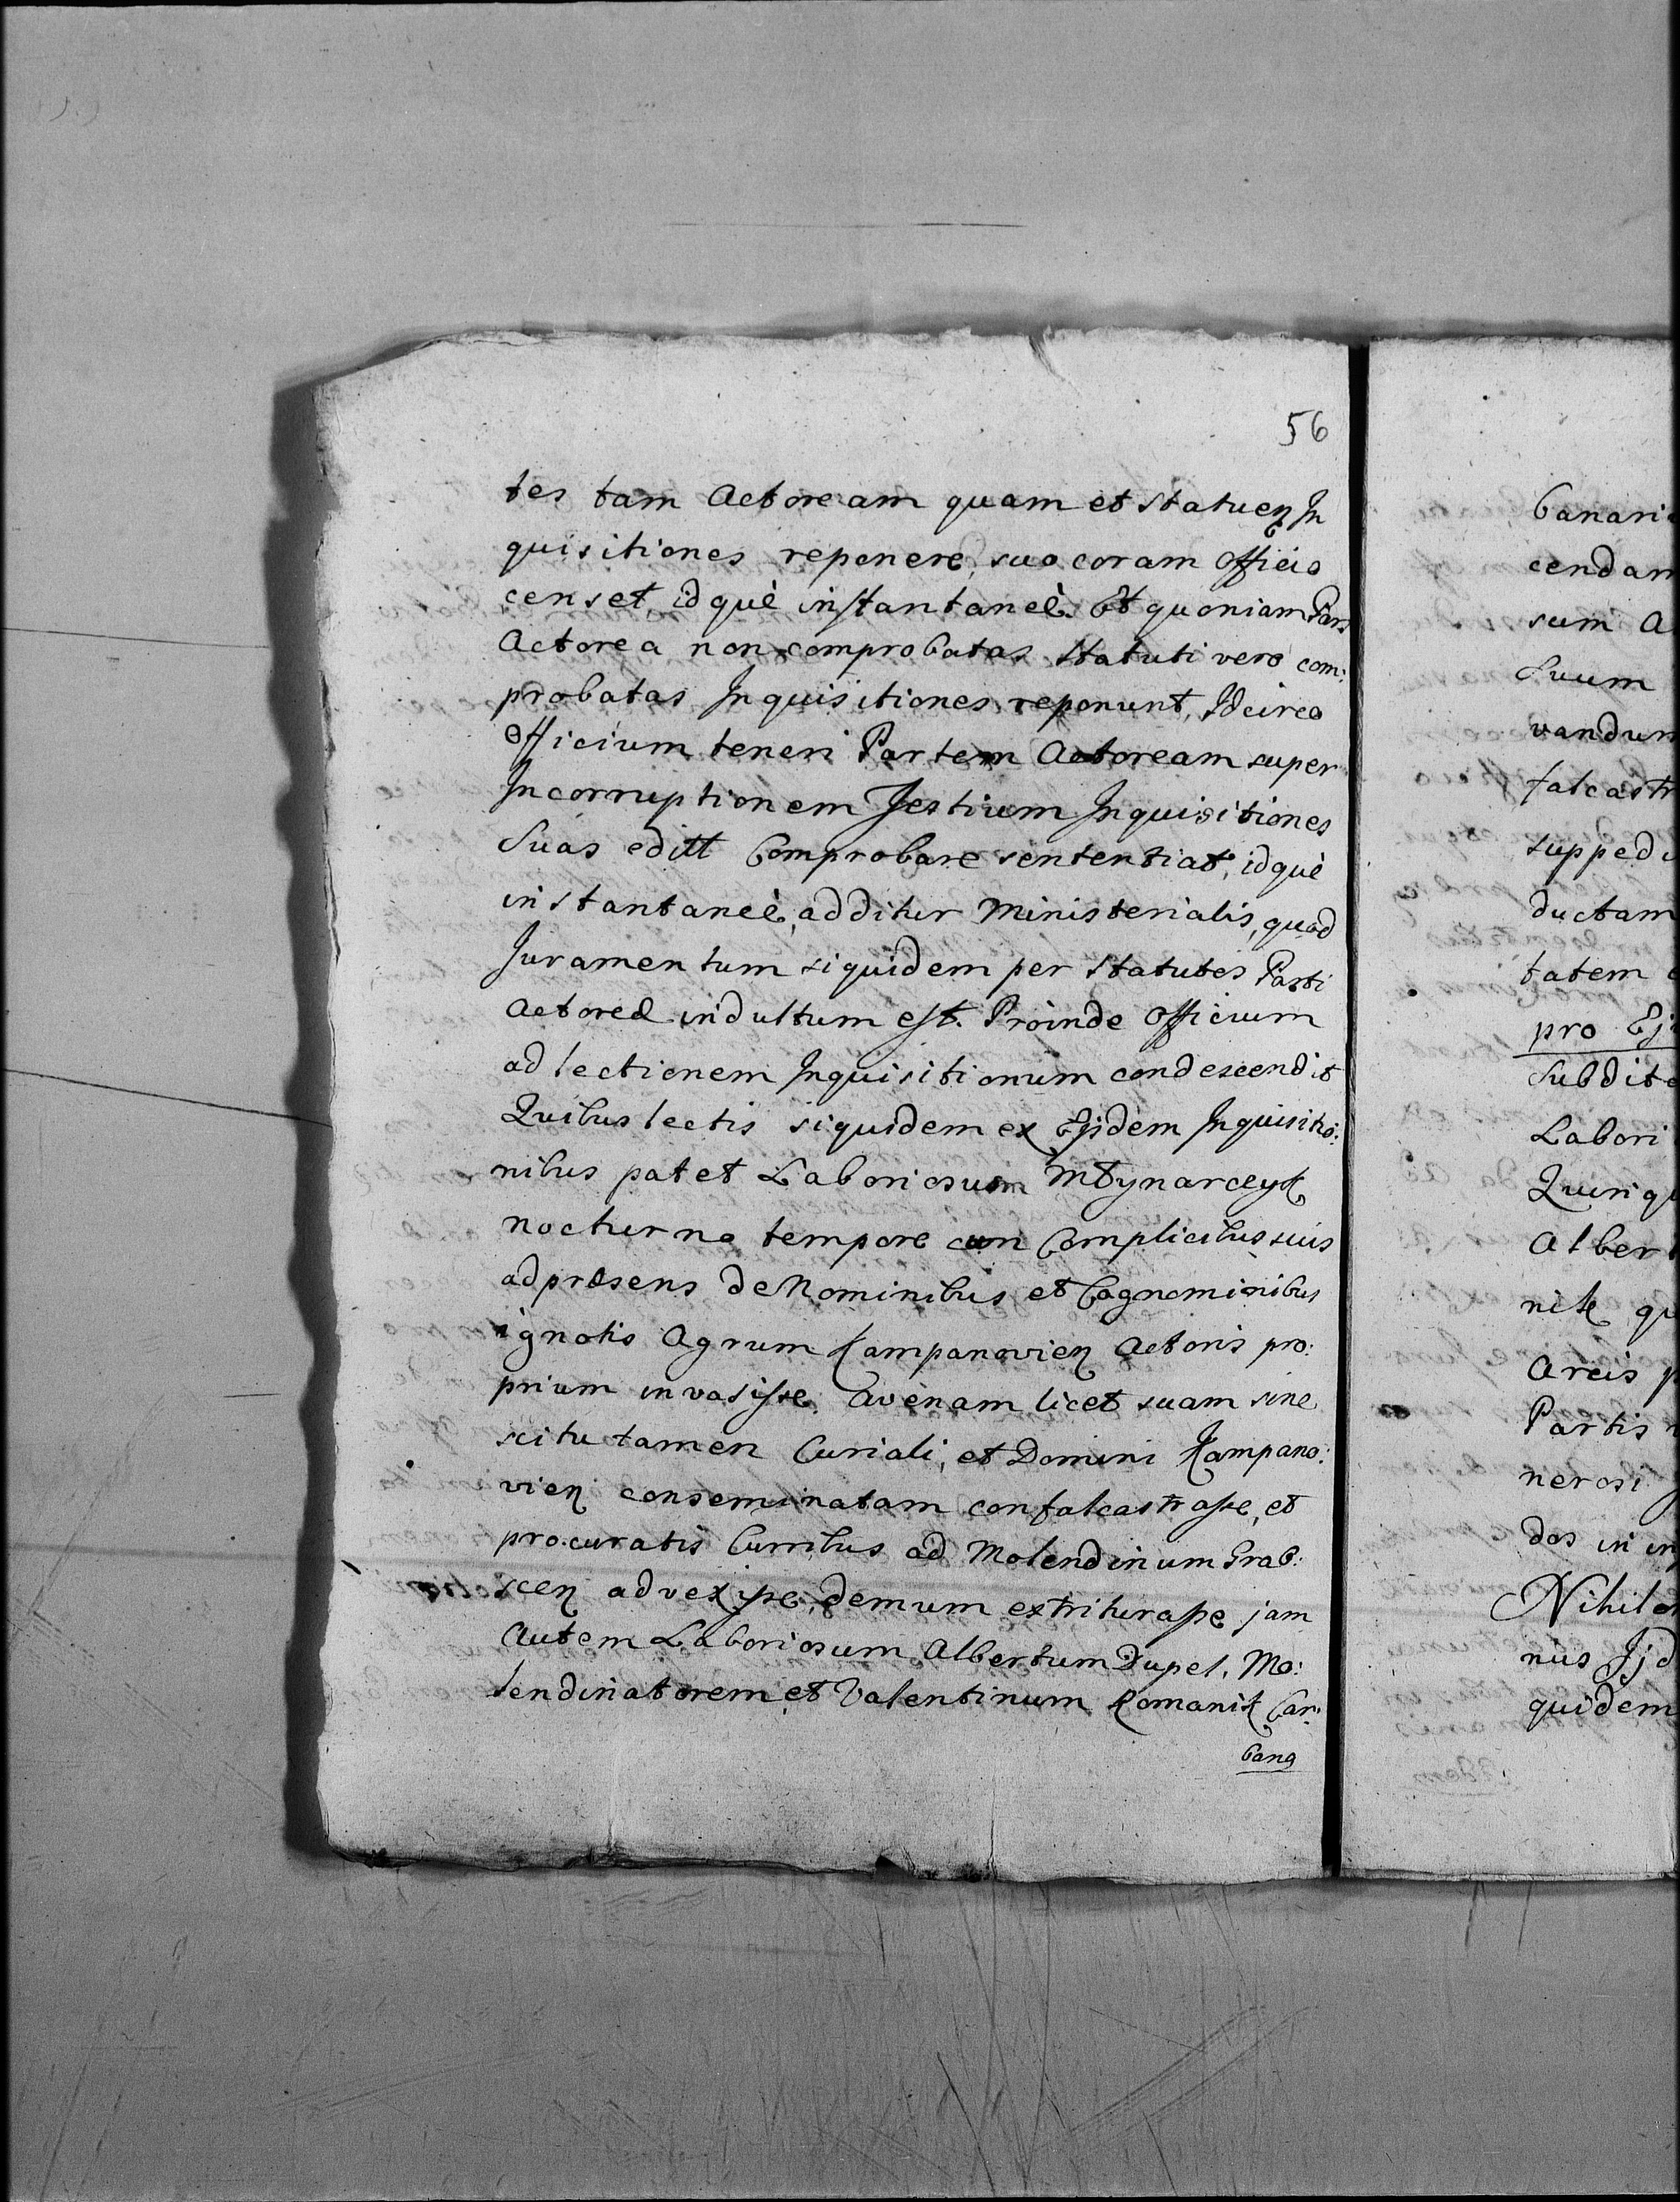 56
tes tam Actoream quam et Statuen In
quisitiones reponere, suo coram Officio
censet, idquè instantaneè. Et quoniam Pars
Actorea non comprobatas Statuti vero com:
probatas Inquisitiones reponunt, Idcirco
Officium teneri Partem Actoream super
Incorruptionem Testium Inquisitiones
Suas Comprobare sententiat, idquè
instantaneè, additur Ministerialis, quod
Juramentum siquidem per Statutos Parti
Actoreæ indultum est. Proinde Officium
ad lectionem Inquisitionum condescendit
Quibus lectis siquidem ex Ejsdem Inquisitio:
nibus patet Laboriosum Młynarczyk
nocturno tempore cum Complicibus suis
ad præsens de Nominibus et Cognominibus
ignotis Agrum Kampanovien Actoris pro:
prium invasisse. Avenam licet suam sine
scitu tamen Curiali, et Domini Kampano:
vien conseminatam confalcastrasse, et
procuratis Curribus ad Molendinum Grab:
scen advexisse, demum extriturasse jam
Autem Laboriosum Albertum Dupel, Mo:
lendinatorem et Valentinum Romanik Car:
bana
cendam
sum A
Suum
vandum
falcastr
supped
ductam
tatem
pro Ej
Subdito
Labori
Albert
nik qu
Arcis p
Partis n
nerosi
dos in in
Nihilo
nus Ijd
quidem